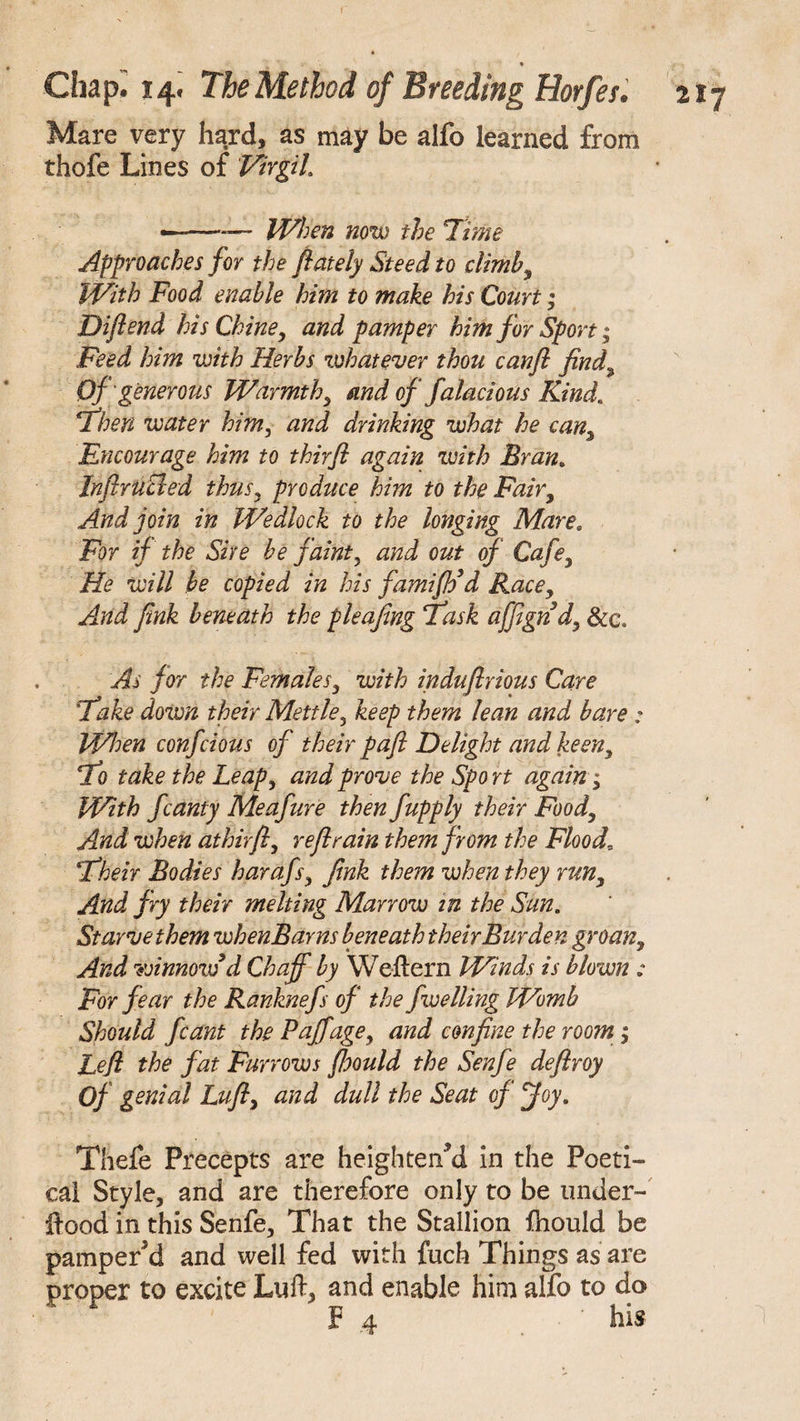 Chap. 14. The Method of Breeding Horſes. 217
Mare very hard, as may be alſo learned from
thoſe Lines of Virgil.
——— When now the Time
Approaches for the ſtately Steed to climb,
With Food enable him to make his Court;
Diſtend his Chine, and pamper him for Sport;
Feed him with Herbs whatever thou canſt find,
Of generous Warmth, and of ſalacious Kind.
Then water him, and drinking what he can,
Encourage him to thirſt again with Bran.
Inſtructed thus, produce him to the Fair,
And join in Wedlock to the longing Mare.
For if the Sire be faint, and out of Caſe,
He will be copied in his famiſh'd Race,
And ſink beneath the pleaſing Task aſſign'd, &c.
As for the Females, with induſtrious Care
Take down their Mettle, keep them lean and bare:
When conſcious of their paſt Delight and keen,
To take the Leap, and prove the Sport again;
With ſcanty Meaſure then ſupply their Food,
And when athirſt, reſtrain them from the Flood.
Their Bodies haraſs, ſink them when they run,
And fry their melting Marrow in the Sun.
Starve them when Barns beneath their Burden groan,
And winnow'd Chaff by Weſtern Winds is blown:
For fear the Rankneſs of the ſwelling Womb
Should ſcant the Paſſage, and confine the room;
Leſt the fat Furrows ſhould the Senſe deſtroy
Of genial Luſt, and dull the Seat of Joy.
Theſe Precepts are heighten'd in the Poeti-
cal Style, and are therefore only to be under-
ſtood in this Senſe, That the Stallion ſhould be
pamper'd and well fed with ſuch Things as are
proper to excite Luſt, and enable him alſo to do
F 4 his